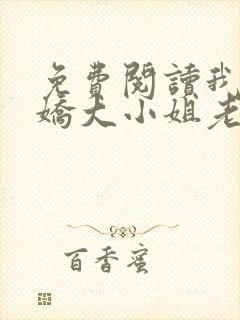 免費閱讀我
嬌大小姐老
百香蜜